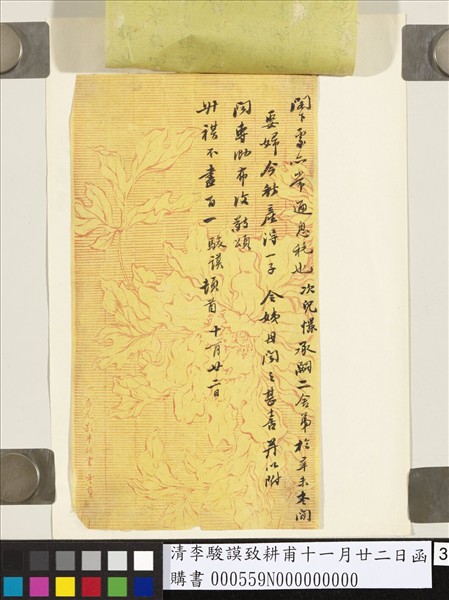 閣下處亦常通息耗也次兒懞承嗣二舍弟於辛未冬間
娶婦今秋產得一子令姨母聞之甚喜再以附
聞專泐布復敬頌
升祺不盡百一駿謨頓首十一月廿二日
清李駿謨致耕甫十一月廿二日函
購書 000559N000000000
3